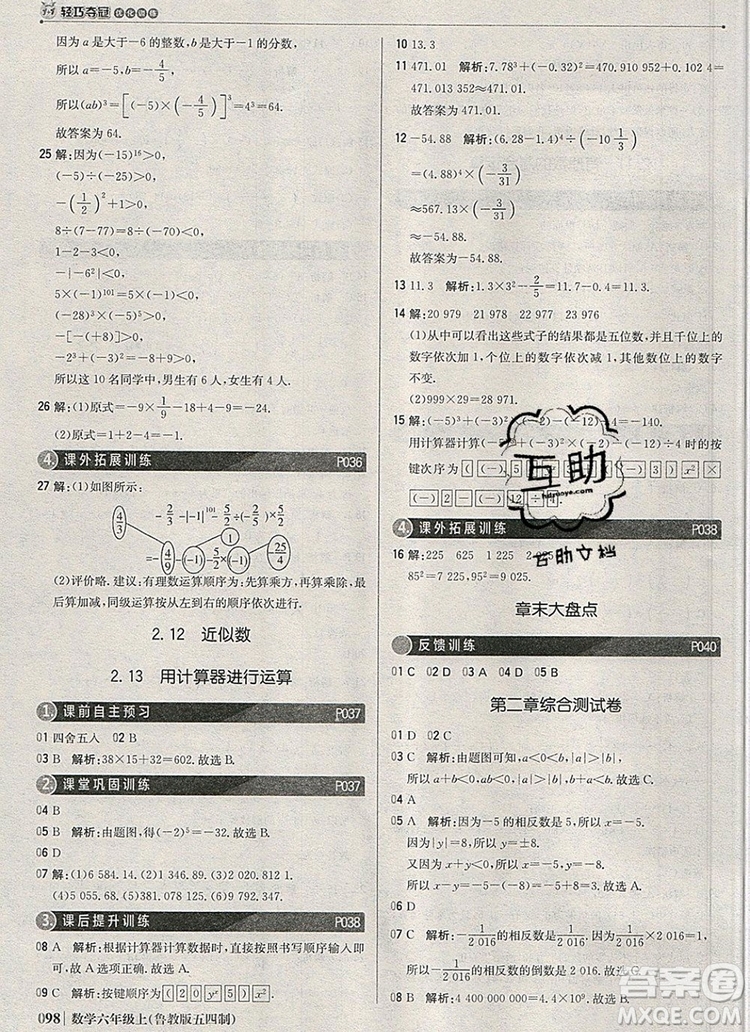 轻巧夺冠 优化训练
因为 a 是大于-6 的整数,b 是大于-1 的分数,
所以 a=-5,b=-4/5,
所以(ab)³=[(-5)×(-4/5)]³=4³=64.
故答案为 64.
25 解:因为(-15)¹⁶>0,
(-5)÷(-5)=1>0,
-(-1/2)²+1>0,
8÷(-7)÷(-5)>0,
1-2-3<0,
-|-6²|<0,
5×(-1)¹⁰¹=-5<0,
-[-(-8)]=-8<0,
-3²÷(-5)>0,
所以这 10 名同学中,男生有 6 人,女生有 4 人.
26 解:(1)原式=-9×1/9-18+4+9=-6.
(2)原式=1+6-4-9=-6.
4. 课外拓展训练 P036
27 解:(1)如图所示:
-2/3 -|-1|¹⁰¹ -5/2÷(-5/2)
4/3 1
-4/9 (-1) (-1) 25/4
(2)评价略. 建议:有理数运算顺序为:先算乘方,再算乘除,最后算加减,同级运算按从左到右的顺序依次进行.
2.12 近似数
2.13 用计算器进行运算
1. 课前自主预习 P037
01 四舍五入 02 B
03 B 解析:38×15+32=602. 故选 B.
2. 课堂巩固训练 P037
04 B
05 B 解析:由题图,得(-2)²÷4-2=-1. 故选 B.
06 D
07 解:(1)6 584.14. (2)1 551.64. (3)9 955.88.
(4)5 055.68. (5)2 948.19. (6)9 792.952.
3. 课后提升训练 P038
08 A 解析:根据计算器计算数据时,直接按照书写顺序输入即可. 故选 A.
09 C 解析:按键顺序应为[2][0][5][x²][=]. 故选 C.
098 数学六年级上(鲁教版五四制)
10 13.3
11 471.01 解析:7.78³+(-0.32)²=470.910 952+0.102 4=
471.013 352≈471.01.
故答案为 471.01.
12 -54.88 解析:(6.28-1.4)⁴÷(-10 1/3)
=(4.88)⁴×(-3/31)
≈567.13×(-3/31)
≈-54.88.
故答案为-54.88.
13 11.3 解析:1.3×3²-2/5=11.3.
14 解:20 979 21 978 22 977 23 976
(1)从中可以看出这些式子的结果都是五位数,并且千位上的
数字依次加 1,个位上的数字依次减 1,其他数位上的数字
不变.
(2)999×29=28 971.
15 解:(-5)³-(-3)²-(-2)÷=-140.
用计算器计算 时的按
键次序为
4. 课外拓展训练 P038
16 解:225 625 1 225 2 025
85²=7 225
章末大盘点
反馈训练 P040
01 C 02 D 03 A 04 D 05 B
第二章综合测试卷
01 D 02 C
03 C 解析:由题图可知,a<0<b,|a|>|b|,
所以 a+b<0. 故选 C.
04 A
05 D 解析:因为-5 的相反数是 5,所以 x=5.
因为|y|=8,所以 y=±8.
又因为 x+y<0,所以 y=-8,
所以 x-y=5-(-8)=13. 故选 D.
06 D
07 C 解析:因为-|-1/2 016|=-1/2 016,-1/2 016 的相反数为
1/2 016,所以-1/2 016 的相反数的倒数是 2 016. 故选 C.
08 B 解析:由题意,得
互助
hdzuoye.com
互助文档
答案圈
MXQE.COM